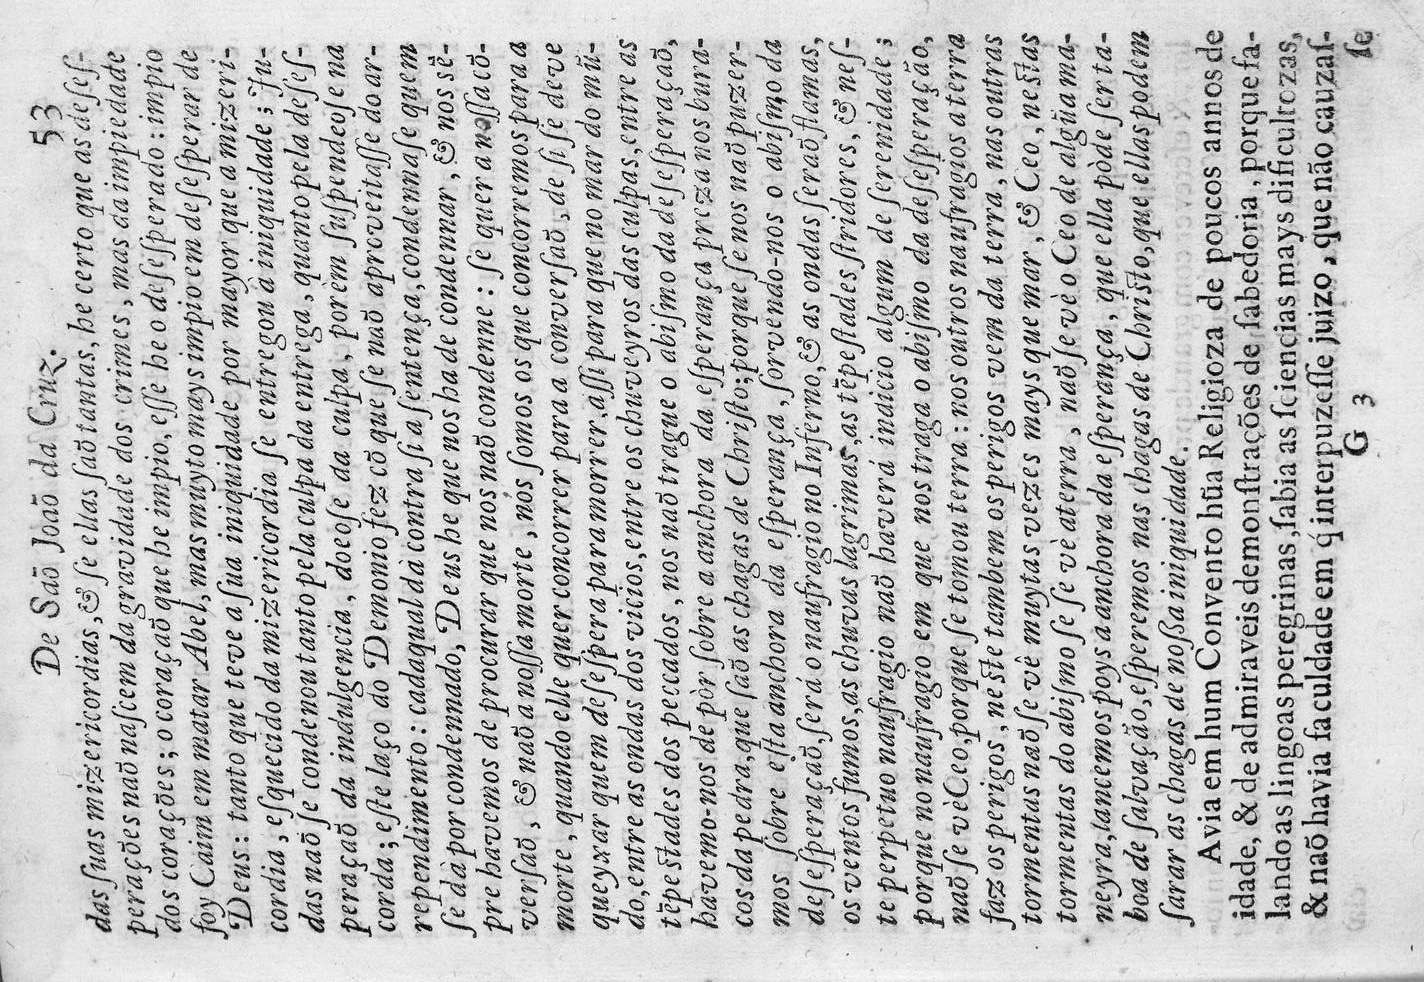 De Saõ Joaõ da Cruz. 53
das ſuas mizericordias, & ſe ellas ſaõ tantas, he certo que as deſeſ-
perações naõ naſcem da gravidade dos crimes, mas da impiedade
dos corações; o coraçaõ que he impio, eſſe he o deſeſperado: impio
foy Caim em matar Abel, mas muyto mays impio em deſeſperar de
Deus: tanto que teve a ſua iniquidade por mayor que a mizeri-
cordia, eſquecido da mizericordia ſe entregou á iniquidade; Ju-
das naõ ſe condenou tanto pela culpa da entrega, quanto pela deſeſ-
peraçaõ da indulgencia, doeoſe da culpa, porem ſuſpendeoſe na
corda; eſte laço do Demonio fez cõ que ſe naõ aproveitaſſe do ar-
rependimento: cadaqual dà contra ſi a ſentença, condennaſe quem
ſe dà por condennado, Deus he que nos ha de condennar, & nos sẽ-
pre havemos de procurar que nos naõ condenne: ſe quer a noſſa cõ-
verſaõ, & naõ a noſſa morte, nós ſomos os que concorremos para a
morte, quando elle quer concorrer para a converſaõ, de ſi ſe deve
queyxar quem deſeſpera para morrer, aſſi para que no mar do mũ-
do, entre as ondas dos vicios, entre os chuveyros das culpas, entre as
tẽpeſtades dos peccados, nos naõ trague o abiſmo da deſeſperaçaõ,
havemo-nos de pòr ſobre a anchora da eſperança preza nos bura-
cos da pedra, que ſaõ as chagas de Chriſto; porque ſe nos naõ puzer-
mos ſobre eſta anchora da eſperança, ſorvendo-nos o abiſmo da
deſeſperaçaõ, ſerá o naufragio no Inferno, & as ondas ſeraõ flamas,
os ventos fumos, as chuvas lagrimas, as tẽpeſtades ſtridores, & neſ-
te perpetuo naufragio naõ haverá indicio algum de ſerenidade;
porque no naufragio em que nos traga o abiſmo da deſeſperação,
naõ ſe vè Ceo, porque ſe tomou terra: nos outros naufragos a terra
faz os perigos, neſte tambem os perigos vem da terra, nas outras
tormentas naõ ſe vê muytas vezes mays que mar, & Ceo, neſtas
tormentas do abiſmo ſe ſe vè a terra, naõ ſe vè o Ceo de algũa ma-
neyra, lancemos poys a anchora da eſperança, que ella pòde ſer ta-
boa de ſalvaçaõ, eſperemos nas chagas de Chriſto, que ellas podem
ſarar as chagas de noſſa iniquidade.
Avia em hum Convento hũa Religioza de poucos annos de
idade, & de admiraveis demonſtrações de ſabedoria, porque fa-
lando as lingoas peregrinas, ſabia as ſciencias mays dificultozas,
& naõ havia faculdade em q́ interpuzeſſe juizo, que não cauzaſ-
G 3 ſe